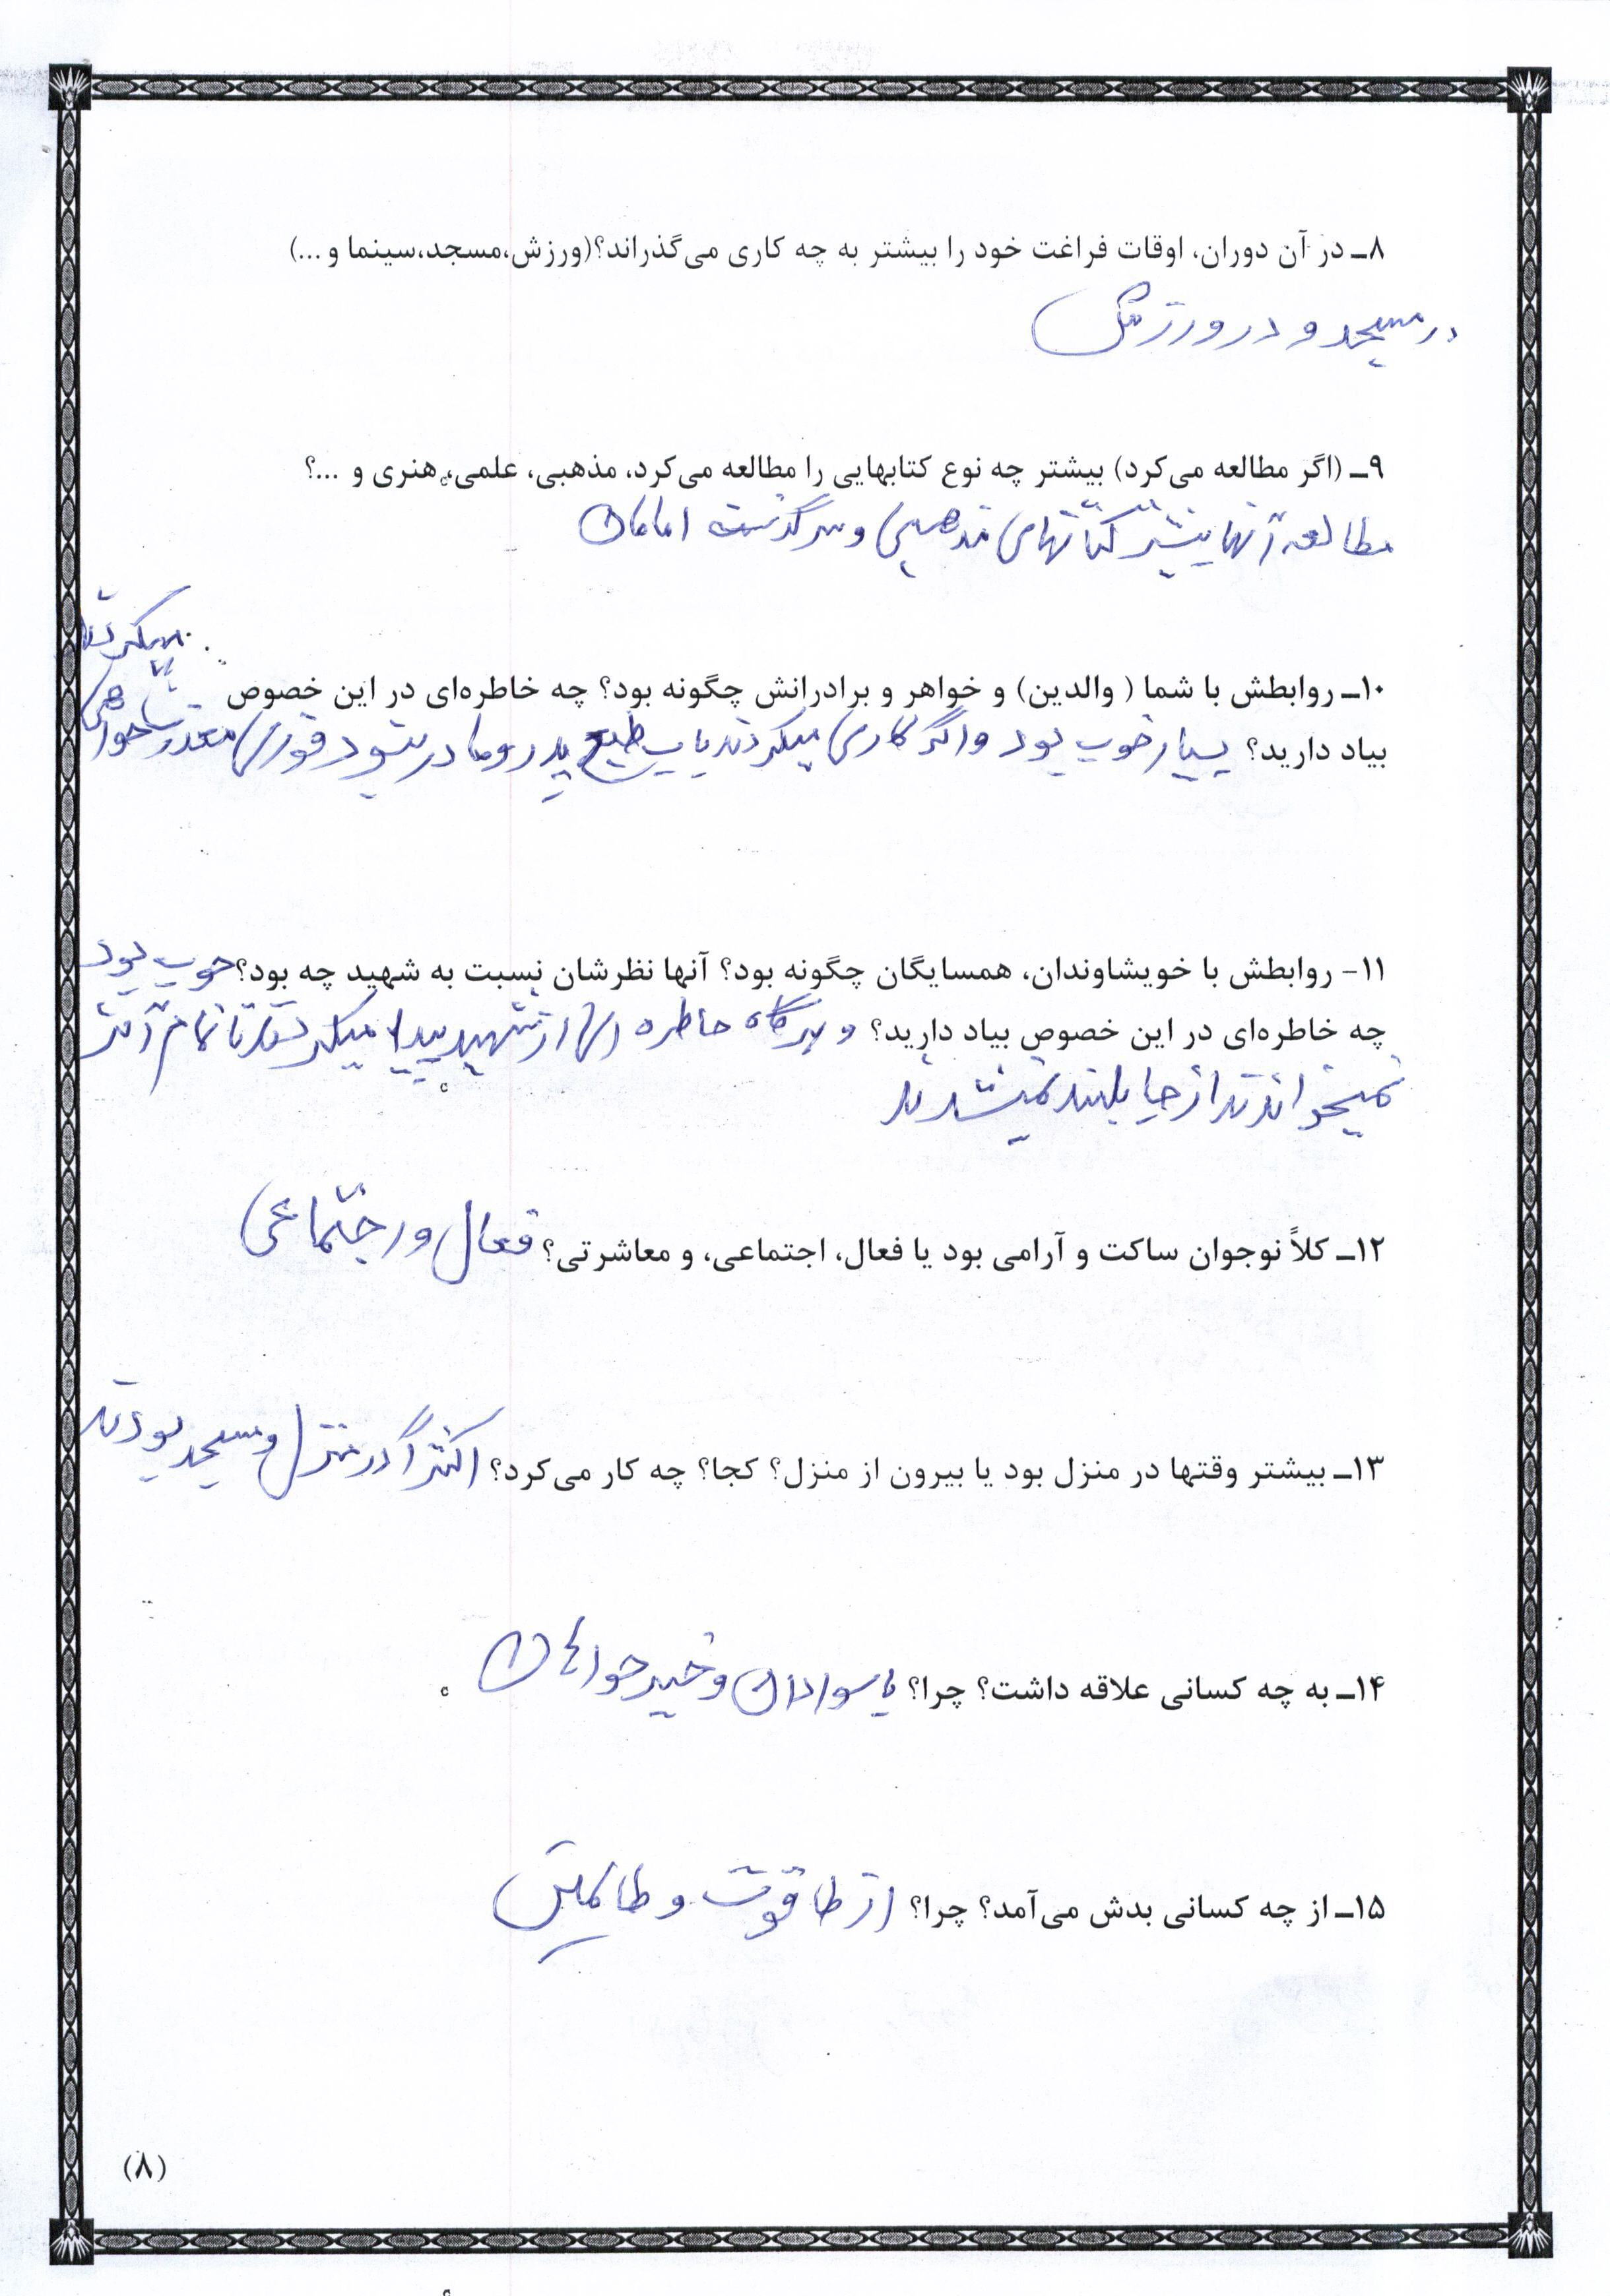 ۸ـ در آن دوران، اوقات فراغت خود را بیشتر به چه کاری می‌گذراند؟(ورزش،مسجد،سینما و ...)
در مسجد و در ورزش
۹ـ (اگر مطالعه می‌کرد) بیشتر چه نوع کتابهایی را مطالعه می‌کرد، مذهبی، علمی، هنری و ...؟
مطالعه آنها بیشتر کتابهای مذهبی و سرگذشت امامان
۱۰ـ روابطش با شما ( والدین) و خواهر و برادرانش چگونه بود؟ چه خاطره‌ای در این خصوص
بیاد دارید؟ بسیار خوب بود و اگر کاری میکردند پدر و مادر فوری معذرت خواهی
میکردند
۱۱- روابطش با خویشاوندان، همسایگان چگونه بود؟ آنها نظرشان نسبت به شهید چه بود؟ خوب بود
چه خاطره‌ای در این خصوص بیاد دارید؟ و هرگاه خاطره ای از شهید پیدا میکردند تا تمام آنرا
نمیخواندند از جا بلند نمیشدند
۱۲ـ کلاً نوجوان ساکت و آرامی بود یا فعال، اجتماعی، و معاشرتی؟ فعال و اجتماعی
۱۳ـ بیشتر وقتها در منزل بود یا بیرون از منزل؟ کجا؟ چه کار می‌کرد؟ اکثراً در منزل و مسجد بودند
۱۴ـ به چه کسانی علاقه داشت؟ چرا؟ با سوادان و خیرخواهان
۱۵ـ از چه کسانی بدش می‌آمد؟ چرا؟ از طاقوت و ظالمین
(۸)